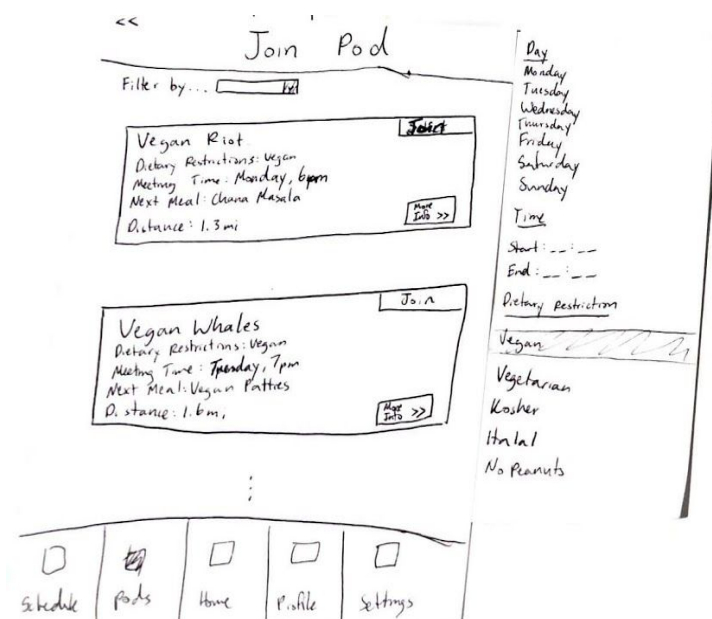 <<
Join Pod
Filter by...
Vegan Riot
Dietary Restrictions: Vegan
Meeting Time: Monday, 6pm
Next Meal: Chana Masala
Distance: 1.3 mi
More
Info >>
Join
Vegan Whales
Dietary Restrictions: Vegan
Meeting Time: Tuesday, 7pm
Next Meal: Vegan Patties
Distance: 1.6 mi
More
Info >>
Schedule
Pods
Home
Profile
Settings
Day
Monday
Tuesday
Wednesday
Thursday
Friday
Saturday
Sunday
Time
Start: __:__
End: __:__
Dietary Restriction
Vegan
Vegetarian
Kosher
Halal
No Peanuts